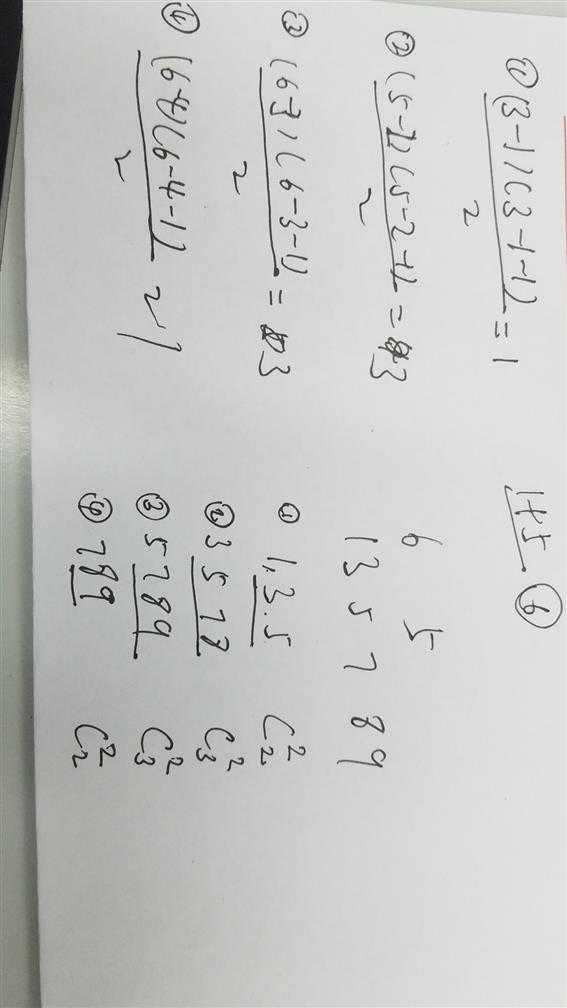 ① (3-1)(3-1-1)/2 = 1
② (5-2)(5-2-1)/2 = 3
③ (6-3)(6-3-1)/2 = 3
④ (6-4)(6-4-1)/2 ~ 1
1+5 ⑥
6 5
1 3 5 7 8 9
① 1,3.5 C₂²
② 3 5 7 8 C₃²
③ 5 7 8 9 C₃²
④ 7 8 9 C₂²